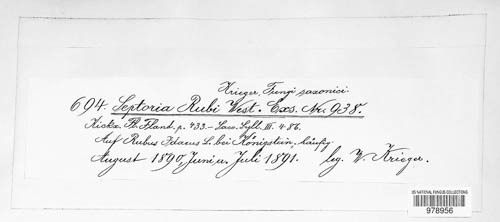 Krieger, Fungi saxonici.
694. Septoria Rubi West. Exs. No. 938.
Kickx. Fl. Fland. p. 433. – Sacc. Syll. III. 486.
Auf Rubus Idaeus L. bei Königstein, häufig
August 1890, Juni u. Juli 1891. leg. W. Krieger.
US NATIONAL FUNGUS COLLECTIONS
978956